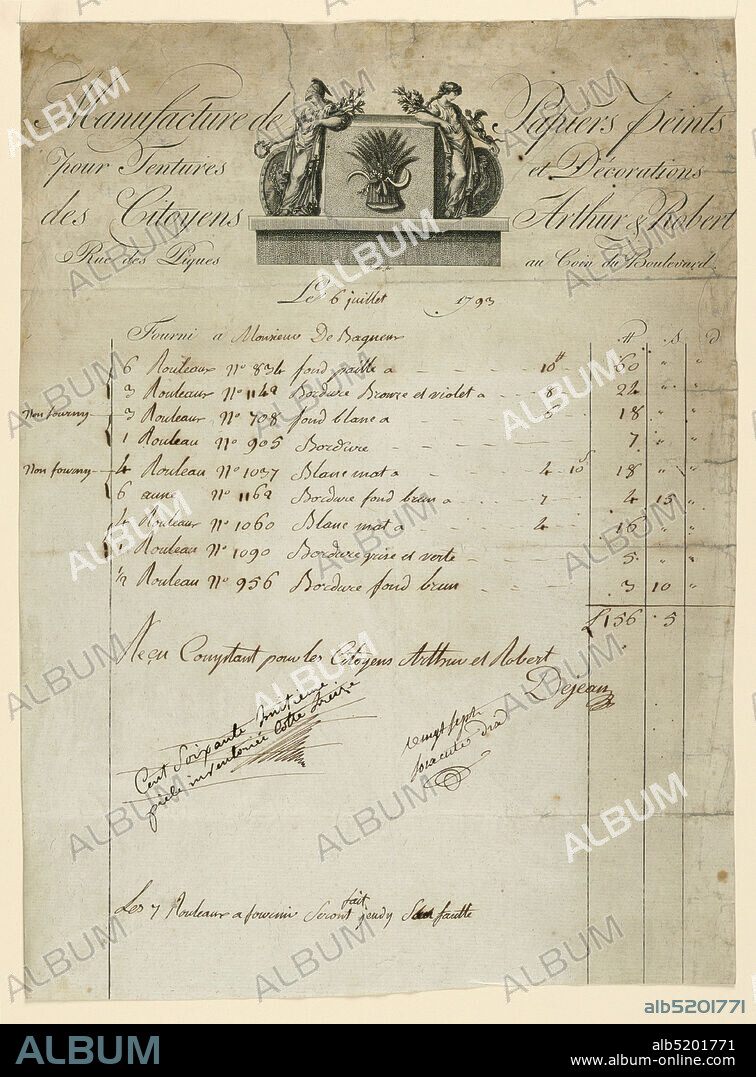 Manufacture de Papiers Peints
pour Tentures et Décorations
des Citoyens Arthur & Robert
Rue des Piques au Coin du Boulevard
Le 6 juillet 1793
Fourni a Monsieur De Bagneux
# S d
6 Rouleaux No 834 fond paille a 10# 60 " "
3 Rouleaux No 1149 Bordure Bronze et violet a 8 24 " "
Non fourny 3 Rouleaux No 708 fond blanc a 6 18 " "
1 Rouleau No 905 Bordure 7 " "
Non fourny 4 Rouleau No 1037 Blanc mat a 4 10s 18 " "
6 aune No 1162 Bordure fond brun a 7 4 15 "
4 Rouleaux No 1060 Blanc mat a 4 16 " "
1 Rouleau No 1090 Bordure grise et verte 5 " "
1/2 Rouleau No 956 Bordure fond brun 3 10 "
£156 5
Reçu Comptant pour les Citoyens Arthur et Robert
Dejean
Cent Soixante huitieme
piece inventoriée Cotte treize
vingt sept
Les 7 Rouleaux a fournir Seront fait jeudy faulte
ALBUM
alb5201771
ALBUM
alb5201771
www.album-online.com